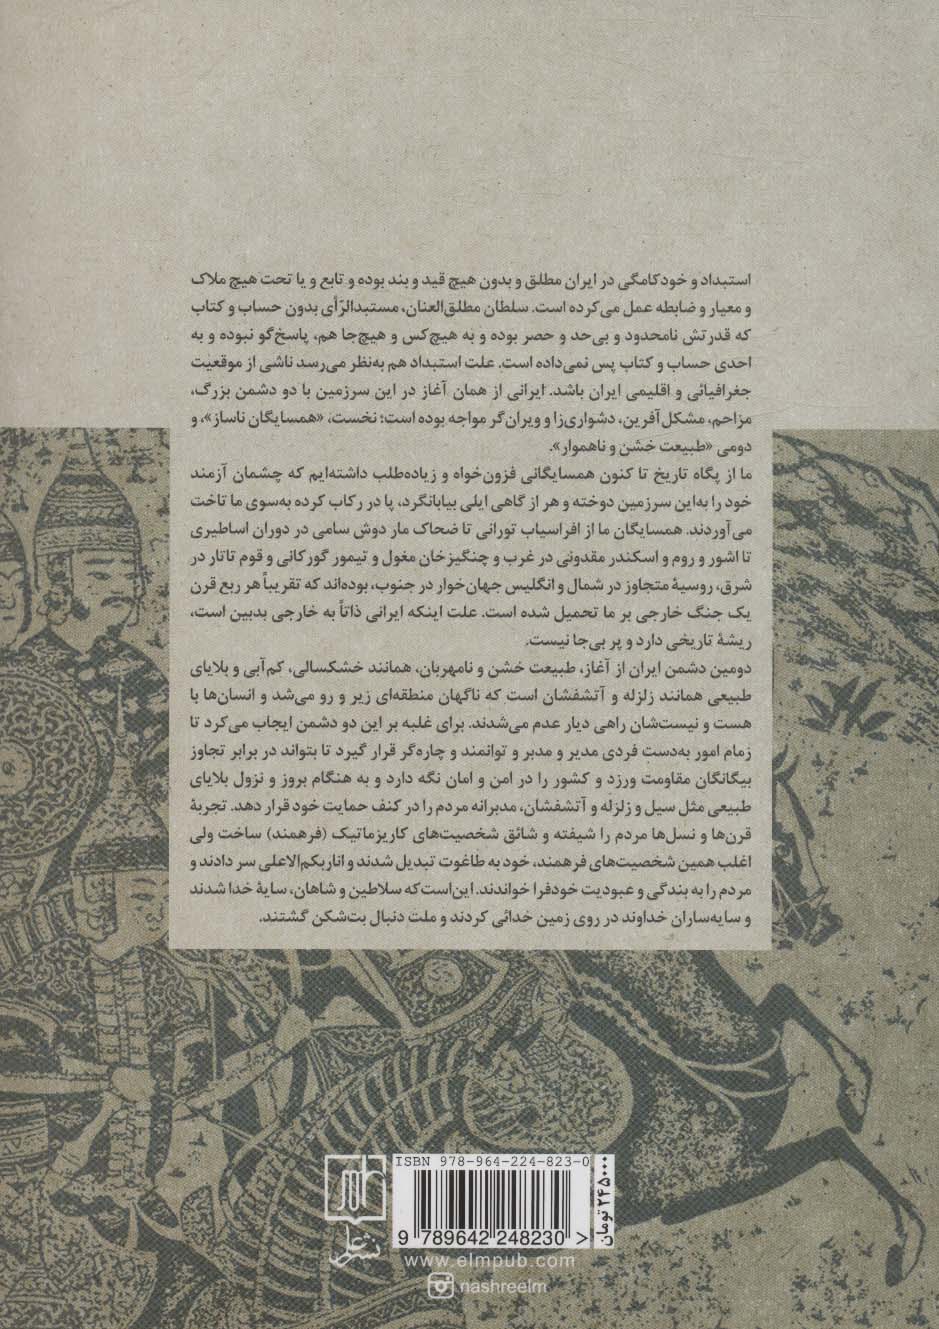 استبداد و خودکامگی در ایران مطلق و بدون هیچ قید و بند بوده و تابع و یا تحت هیچ ملاک
و معیار و ضابطه عمل می‌کرده است. سلطان مطلق‌العنان، مستبدالرّأی بدون حساب و کتاب
که قدرتش نامحدود و بی‌حد و حصر بوده و به هیچ‌کس و هیچ‌جا هم، پاسخ‌گو نبوده و به
احدی حساب و کتاب پس نمی‌داده است. علت استبداد هم به‌نظر می‌رسد ناشی از موقعیت
جغرافیائی و اقلیمی ایران باشد. ایرانی از همان آغاز در این سرزمین با دو دشمن بزرگ،
مزاحم، مشکل‌آفرین، دشواری‌زا و ویران‌گر مواجه بوده است؛ نخست، «همسایگان ناساز»، و
دومی «طبیعت خشن و ناهموار».
ما از پگاه تاریخ تا کنون همسایگانی فزون‌خواه و زیاده‌طلب داشته‌ایم که چشمان آزمند
خود را به‌این سرزمین دوخته و هر از گاهی ایلی بیابانگرد، پا در رکاب کرده به‌سوی ما تاخت
می‌آوردند. همسایگان ما از افراسیاب تورانی تا ضحاک مار دوش سامی در دوران اساطیری
تا اشور و روم و اسکندر مقدونی در غرب و چنگیزخان مغول و تیمور گورکانی و قوم تاتار در
شرق، روسیهٔ متجاوز در شمال و انگلیس جهان‌خوار در جنوب، بوده‌اند که تقریباً هر ربع قرن
یک جنگ خارجی بر ما تحمیل شده است. علت اینکه ایرانی ذاتاً به خارجی بدبین است،
ریشهٔ تاریخی دارد و پر بی‌جا نیست.
دومین دشمن ایران از آغاز، طبیعت خشن و نامهربان، همانند خشکسالی، کم‌آبی و بلایای
طبیعی همانند زلزله و آتشفشان است که ناگهان منطقه‌ای زیر و رو می‌شد و انسان‌ها با
هست و نیست‌شان راهی دیار عدم می‌شدند. برای غلبه بر این دو دشمن ایجاب می‌کرد تا
زمام امور به‌دست فردی مدیر و مدبر و توانمند و چاره‌گر قرار گیرد تا بتواند در برابر تجاوز
بیگانگان مقاومت ورزد و کشور را در امن و امان نگه دارد و به هنگام بروز و نزول بلایای
طبیعی مثل سیل و زلزله و آتشفشان، مدبرانه مردم را در کنف حمایت خود قرار دهد. تجربهٔ
قرن‌ها و نسل‌ها مردم را شیفته و شائق شخصیت‌های کاریزماتیک (فرهمند) ساخت ولی
اغلب همین شخصیت‌های فرهمند، خود به طاغوت تبدیل شدند و اناربکم‌الاعلی سر دادند و
مردم را به بندگی و عبودیت خودفرا خواندند. این‌است‌که سلاطین و شاهان، سایهٔ خدا شدند
و سایه‌ساران خداوند در روی زمین خدائی کردند و ملت دنبال بت‌شکن گشتند.
ISBN 978-964-224-823-0
9 789642 248230 >
۲۴۵۰۰۰ تومان
علم
نشر علم
www.elmpub.com
nashreelm